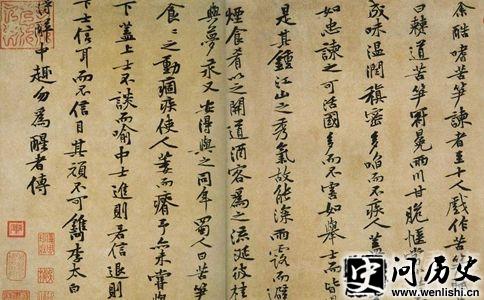 余酷嗜苦笋諫者至十人戲作苦笋
曰僰道苦笋冠冕兩川甘脆愜
成味溫潤稹密多啗而不疾人蓋
如忠諫之可活國多而不害如舉士而
是其鍾江山之秀氣故能深雨露而避
煙食肴以之開道酒客爲之流涎彼桂
與夢汞又安得與之同年蜀人曰苦笋
食〻之動痼疾使人萎而瘠予亦未嘗與
下蓋上士不談而喻中士進則若信退則
下士信耳而不信目其頑不可鐫李太白
得醉中趣勿爲醒者傳
史问历史
www.wenlishi.cn